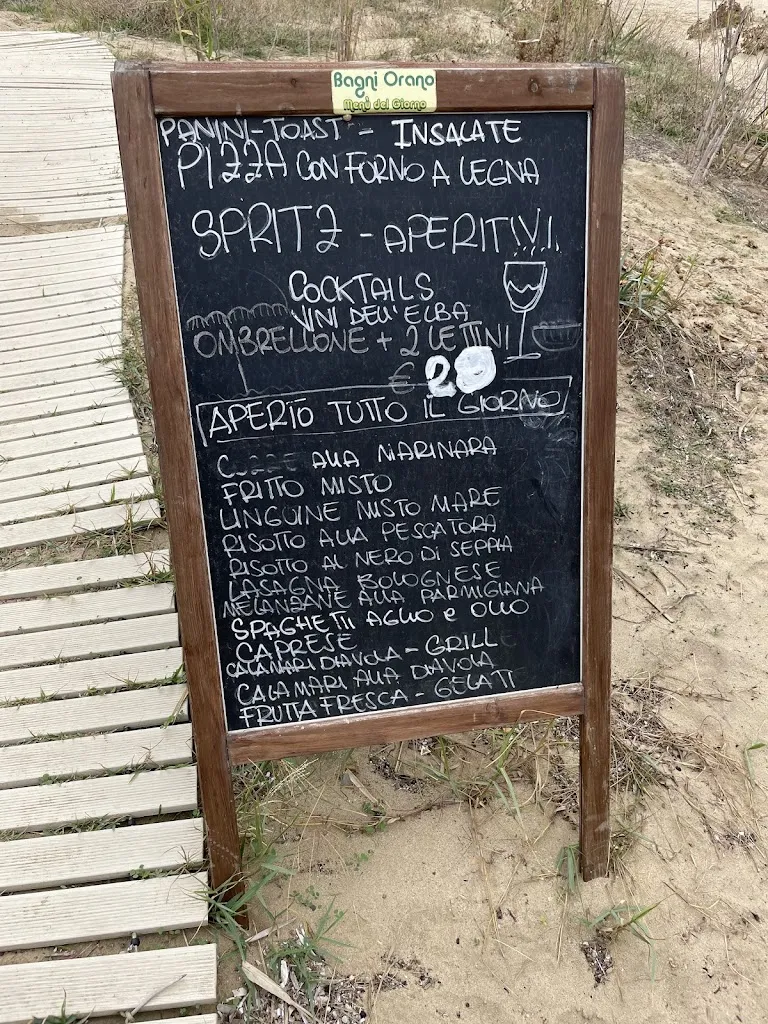 Bagni Orano
Menù del Giorno
PANINI-TOAST - INSALATE
PIZZA CON FORNO A LEGNA
SPRITZ - APERITIVI
COCKTAILS
VINI DELL'ELBA
OMBRELLONE + 2 LETTINI
€ 20
APERTO TUTTO IL GIORNO
COZZE ALLA MARINARA
FRITTO MISTO
LINGUINE MISTO MARE
RISOTTO ALLA PESCATORA
RISOTTO AL NERO DI SEPPIA
LASAGNA BOLOGNESE
MELANZANE ALLA PARMIGIANA
SPAGHETTI AGLIO e OLIO
CAPRESE
CALAMARI DIAVOLA - GRILL
CALAMARI ALLA DIAVOLA
FRUTTA FRESCA - GELATI